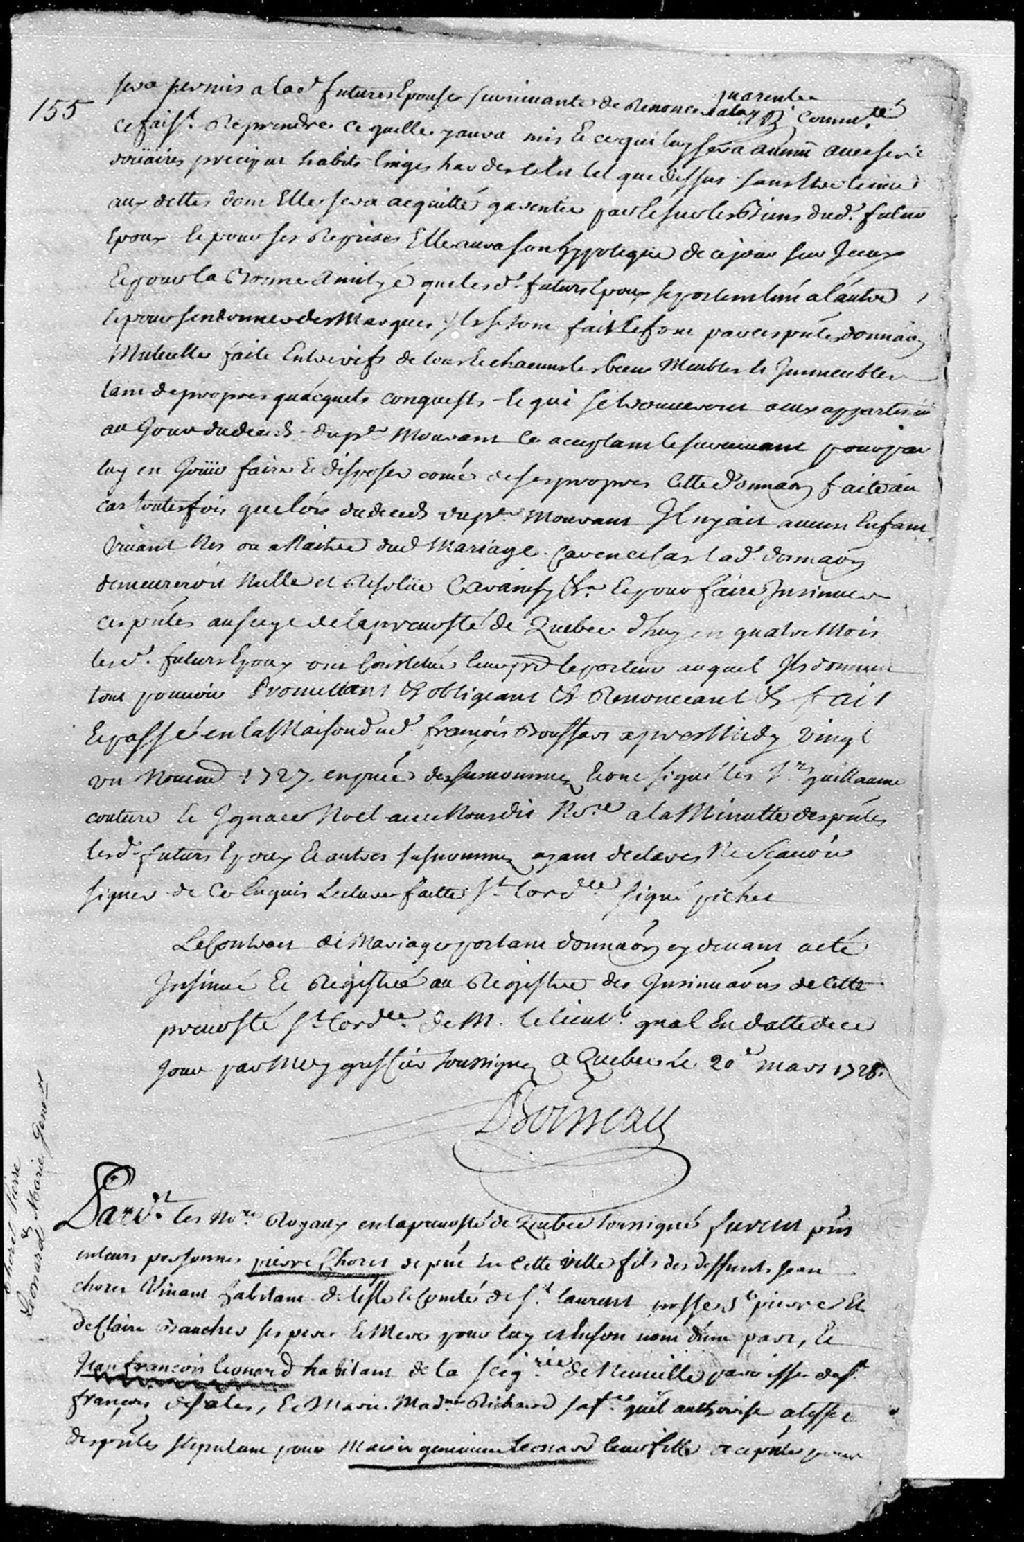 155
quarente
sera permis a lad.e future Epouse survivante de Renoncer a lad. Comm.té
ce fais.t Reprendre ce quelle y aura mis et ce qui luy sera avenu avec ses
doüaires preciput habits linges hardes et lit tel que dessus sans Estre tenue
aux dettes dont Elle sera acquittée garentie par et sur les Biens dud. futur
Epoux Et pour ses Reprises Elle aura son hypoteque de ce jour sur Iceux
Et pour la Bonne Amityé que lesd. futurs Epoux se portent l'un a l'autre
Et pour s'en donner des Marques Ils se sont fait Et font par ces pntes donnaon
Mutuelle faite Entre vifs de tous Et chacuns les biens Meubles et Immeubles
tant de propres qu'acquets conquests Et qui se trouveront a eux appartenir
au Jour du deceds du pr. Mourant ce acceptant le survivant pour par
luy en Joüir faire Et disposer comé de ses propres cette donnaon faite au
cas toutesfois que lors du deceds du pr. Mourant Il n'y ait aucun Enfant
vivant Nés ou a Naitre dud Mariage Car en ce cas lad. donnaon
demeureroit Nulle et Resolüe Car ainsy &a Et pour faire Insinuer
ces pntes au siege de la prevosté de Quebec d'huy en quatre Mois
lesd. futurs Epoux ont Constitué leur pr le porteur auquel Ils donnent
tout pouvoir Promettant & obligeant & Renonceant & fait
Et passé en la Maison dud. françois Bouffart apres Midy vingt
un Novemb 1727 en pnce des susnommez Et ont signé les Srs guillaume
couture Et Ignace Noel avec Nousdit No.re a la Minutte des pntes
lesd. futurs Epoux Et autres susnommez ayant declarez Ne Sçavoir
signer de Ce Enquis Lecture faitte St. lord.ce signé pichet
Le Contract de Mariage portant donnaon cy devant a eté
Insinué Et Registré au Registre des Insinuaons de Cette
prevosté St. lord.ce de M. le lieut. gnal En datte de ce
Jour par Moy greffier soussigné A Quebec le 20e mars 1728
Boisseau
Chorét Pierre
&
Leonard Marie Genev.
Pardt. les No.res Royaux en la prevosté de Quebec soussignés furent pns
en leurs personnes pierre Choret de pnt En Cette ville fils de deffunt Jean
choret Vivant habitant de l'isle Et Comté de St. laurent parosse St pierre Et
de Claire Bauchés ses pere Et Mere pour luy et En son nom d'une part, Et
Jean françois leonard habitant de la seig.rie de Neuville paroisse de St.
françois de sales, Et Marie Mad.ne Richard sa fe. qu'il authorise a l'effet
des pntes stipulant pour Marie genevieve Leonard leur fille a ce pnte pour